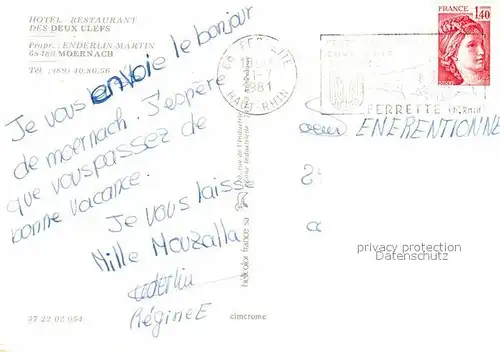 HOTEL - RESTAURANT
DES DEUX CLEFS
Propr. : ENDERLIN-MARTIN
68480 MOERNACH
Tél. (89) 40.80.56
FRANCE
1,40
68 FERRETTE
1-7
1981
HAUT-RHIN
FERRETTE
Je vous envoie le bonjour
de moernach. J'espère
que vous passez de
bonne vacance.
Je vous laisse
Mille Mouzalla
RégineE
ENERENTIONNE
helicolor france sa
37 22 02 054
cimcrome
privacy protection
Datenschutz